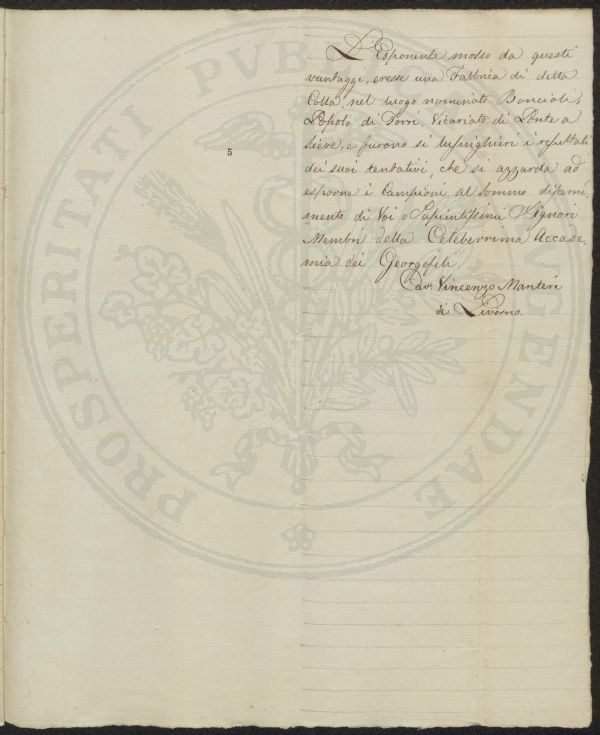 L'Esponente mosso da questi
vantaggi, eresse una Fabbrica di detta
Colla, nel luogo nominato Boncioli,
Popolo di Torri, Vicariato di Ponte a
Sieve, e furono sì lusinghieri i resultati
dei suoi tentativi, che si azzarda ad
esporne i Campioni al Sommo discerni
mento di Voi o Sapientissimi Signori
Membri della Celeberrima Accade,
mia dei Georgofili.
Cav. Vincenzo Manteri
di Livorno.
5
PROSPERITATI PUBLICAE AUGENDAE